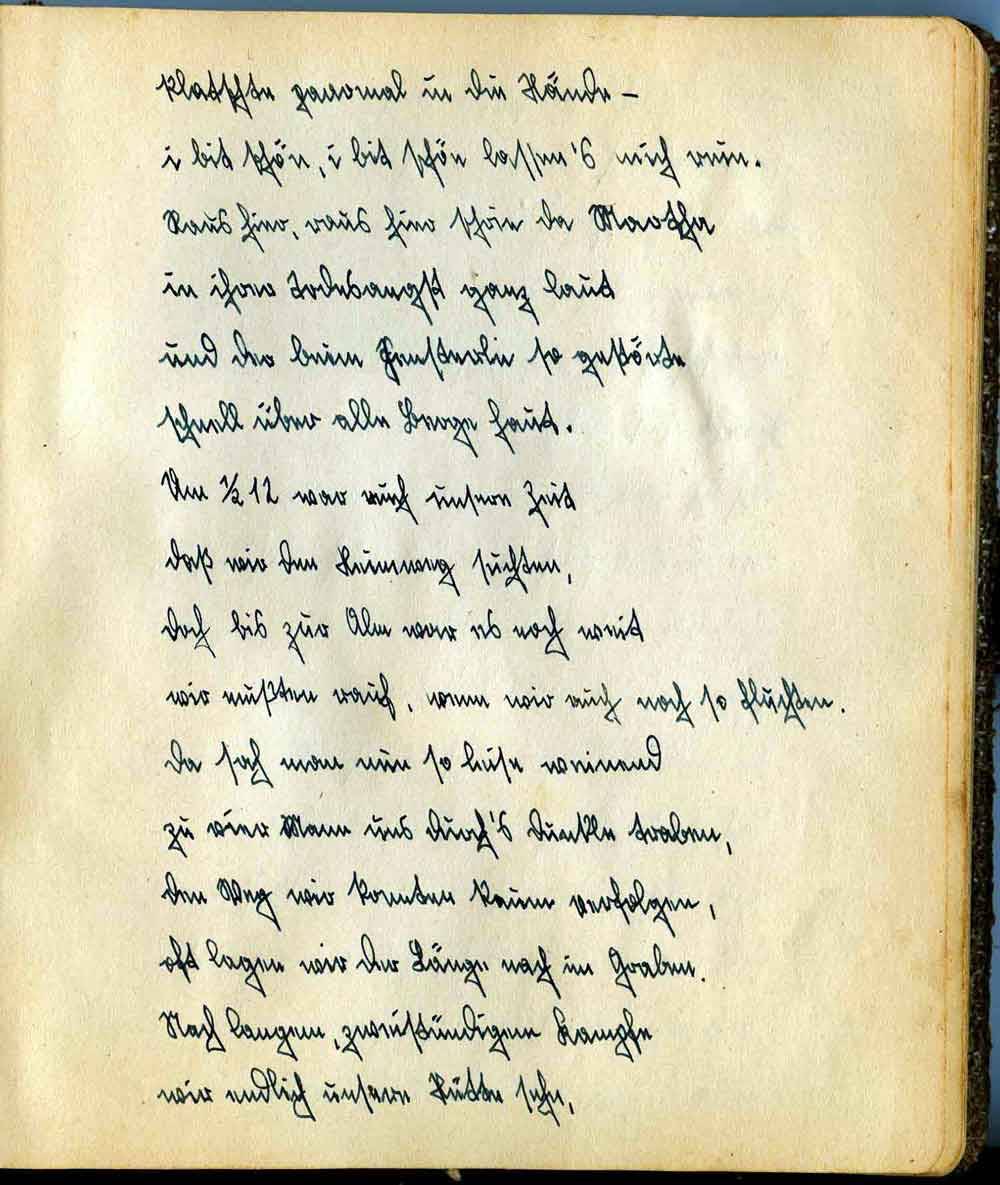 klatschte paarmal in die Hände –
i bit schön, i bit schön lassen's mich rein.
Raus hier, raus hier schrie da Martha
in ihrer Todesangst ganz laut
und der beim Fensterln so gestörte
schnell über alle Berge haut.
Um ½ 12 war auch unsere Zeit
daß wir den Heimweg suchten,
doch bis zur Alm war es noch weit
wir mußten rauf, wenn wir auch noch so fluchten.
Da sah man nun so leise weinend
zu vier Mann uns durch's Dunkle traben,
den Weg wir konnten kaum verfolgen,
oft lagen wir der Länge nach im Graben.
Nach langem, zweistündigem Kampfe
wir endlich unsere Hütte sehn,